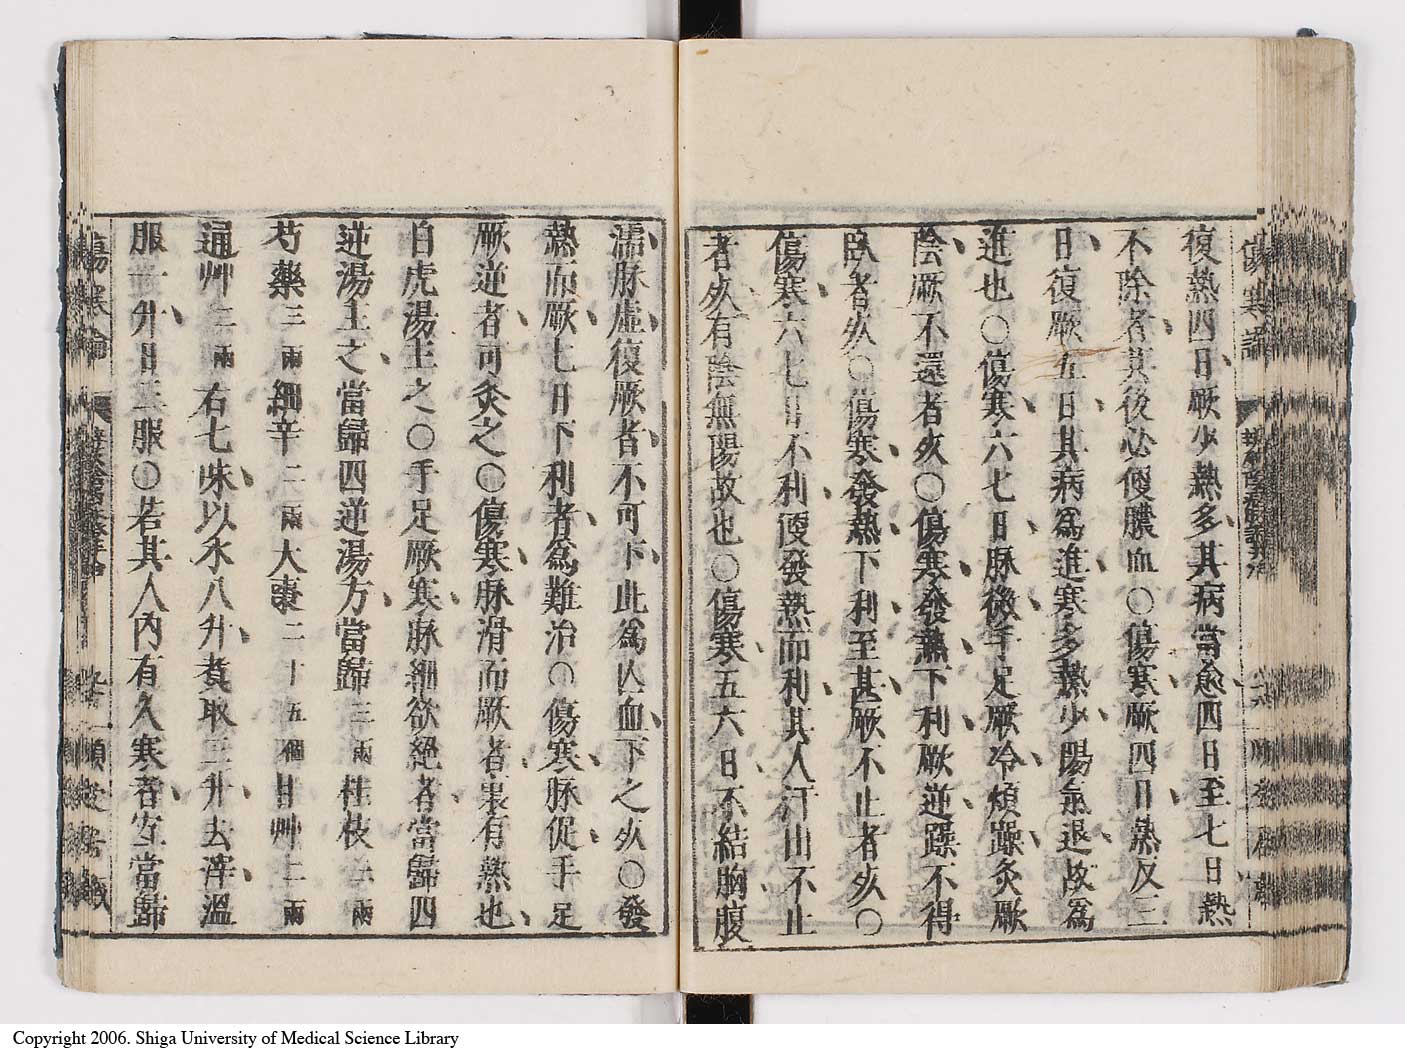 復熱四日厥少熱多其病當愈四日至七日熱
不除者其後必便膿血〇傷寒厥四日熱反三
日復厥五日其病爲進寒多熱少陽氣退故爲
進也〇傷寒六七日脉微手足厥冷煩躁灸厥
陰厥不還者死〇傷寒發熱下利厥逆躁不得
臥者死〇傷寒發熱下利至甚厥不止者死〇
傷寒六七日不利便發熱而利其人汗出不止
者死有陰無陽故也〇傷寒五六日不結胸腹
濡脉虛復厥者不可下此爲亾血下之死〇發
熱而厥七日下利者爲難治〇傷寒脉促手足
厥逆者可灸之〇傷寒脉滑而厥者裏有熱也
白虎湯主之〇手足厥寒脉細欲絕者當歸四
逆湯主之當歸四逆湯方當歸三兩桂枝三兩
芍藥三兩細辛二兩大棗二十五個甘艸二兩
通艸二兩右七味以水八升煑取三升去滓溫
服一升日三服〇若其人內有久寒者宜當歸
傷寒論
Copyright 2006. Shiga University of Medical Science Library